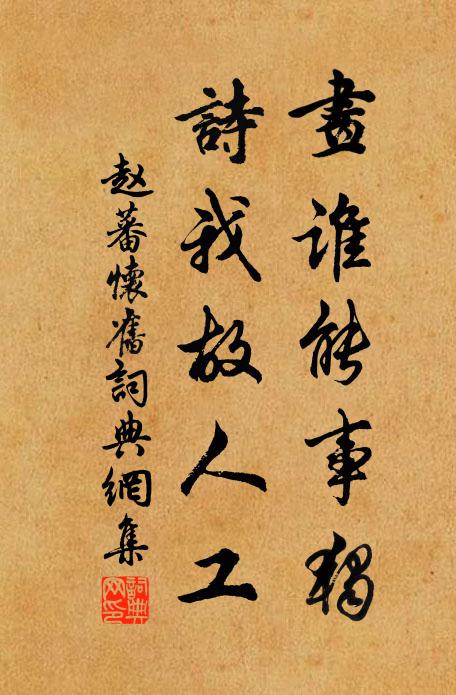 畫誰能事獨
詩我故人工
赵蕃懷舊詞典網集
詞典網印